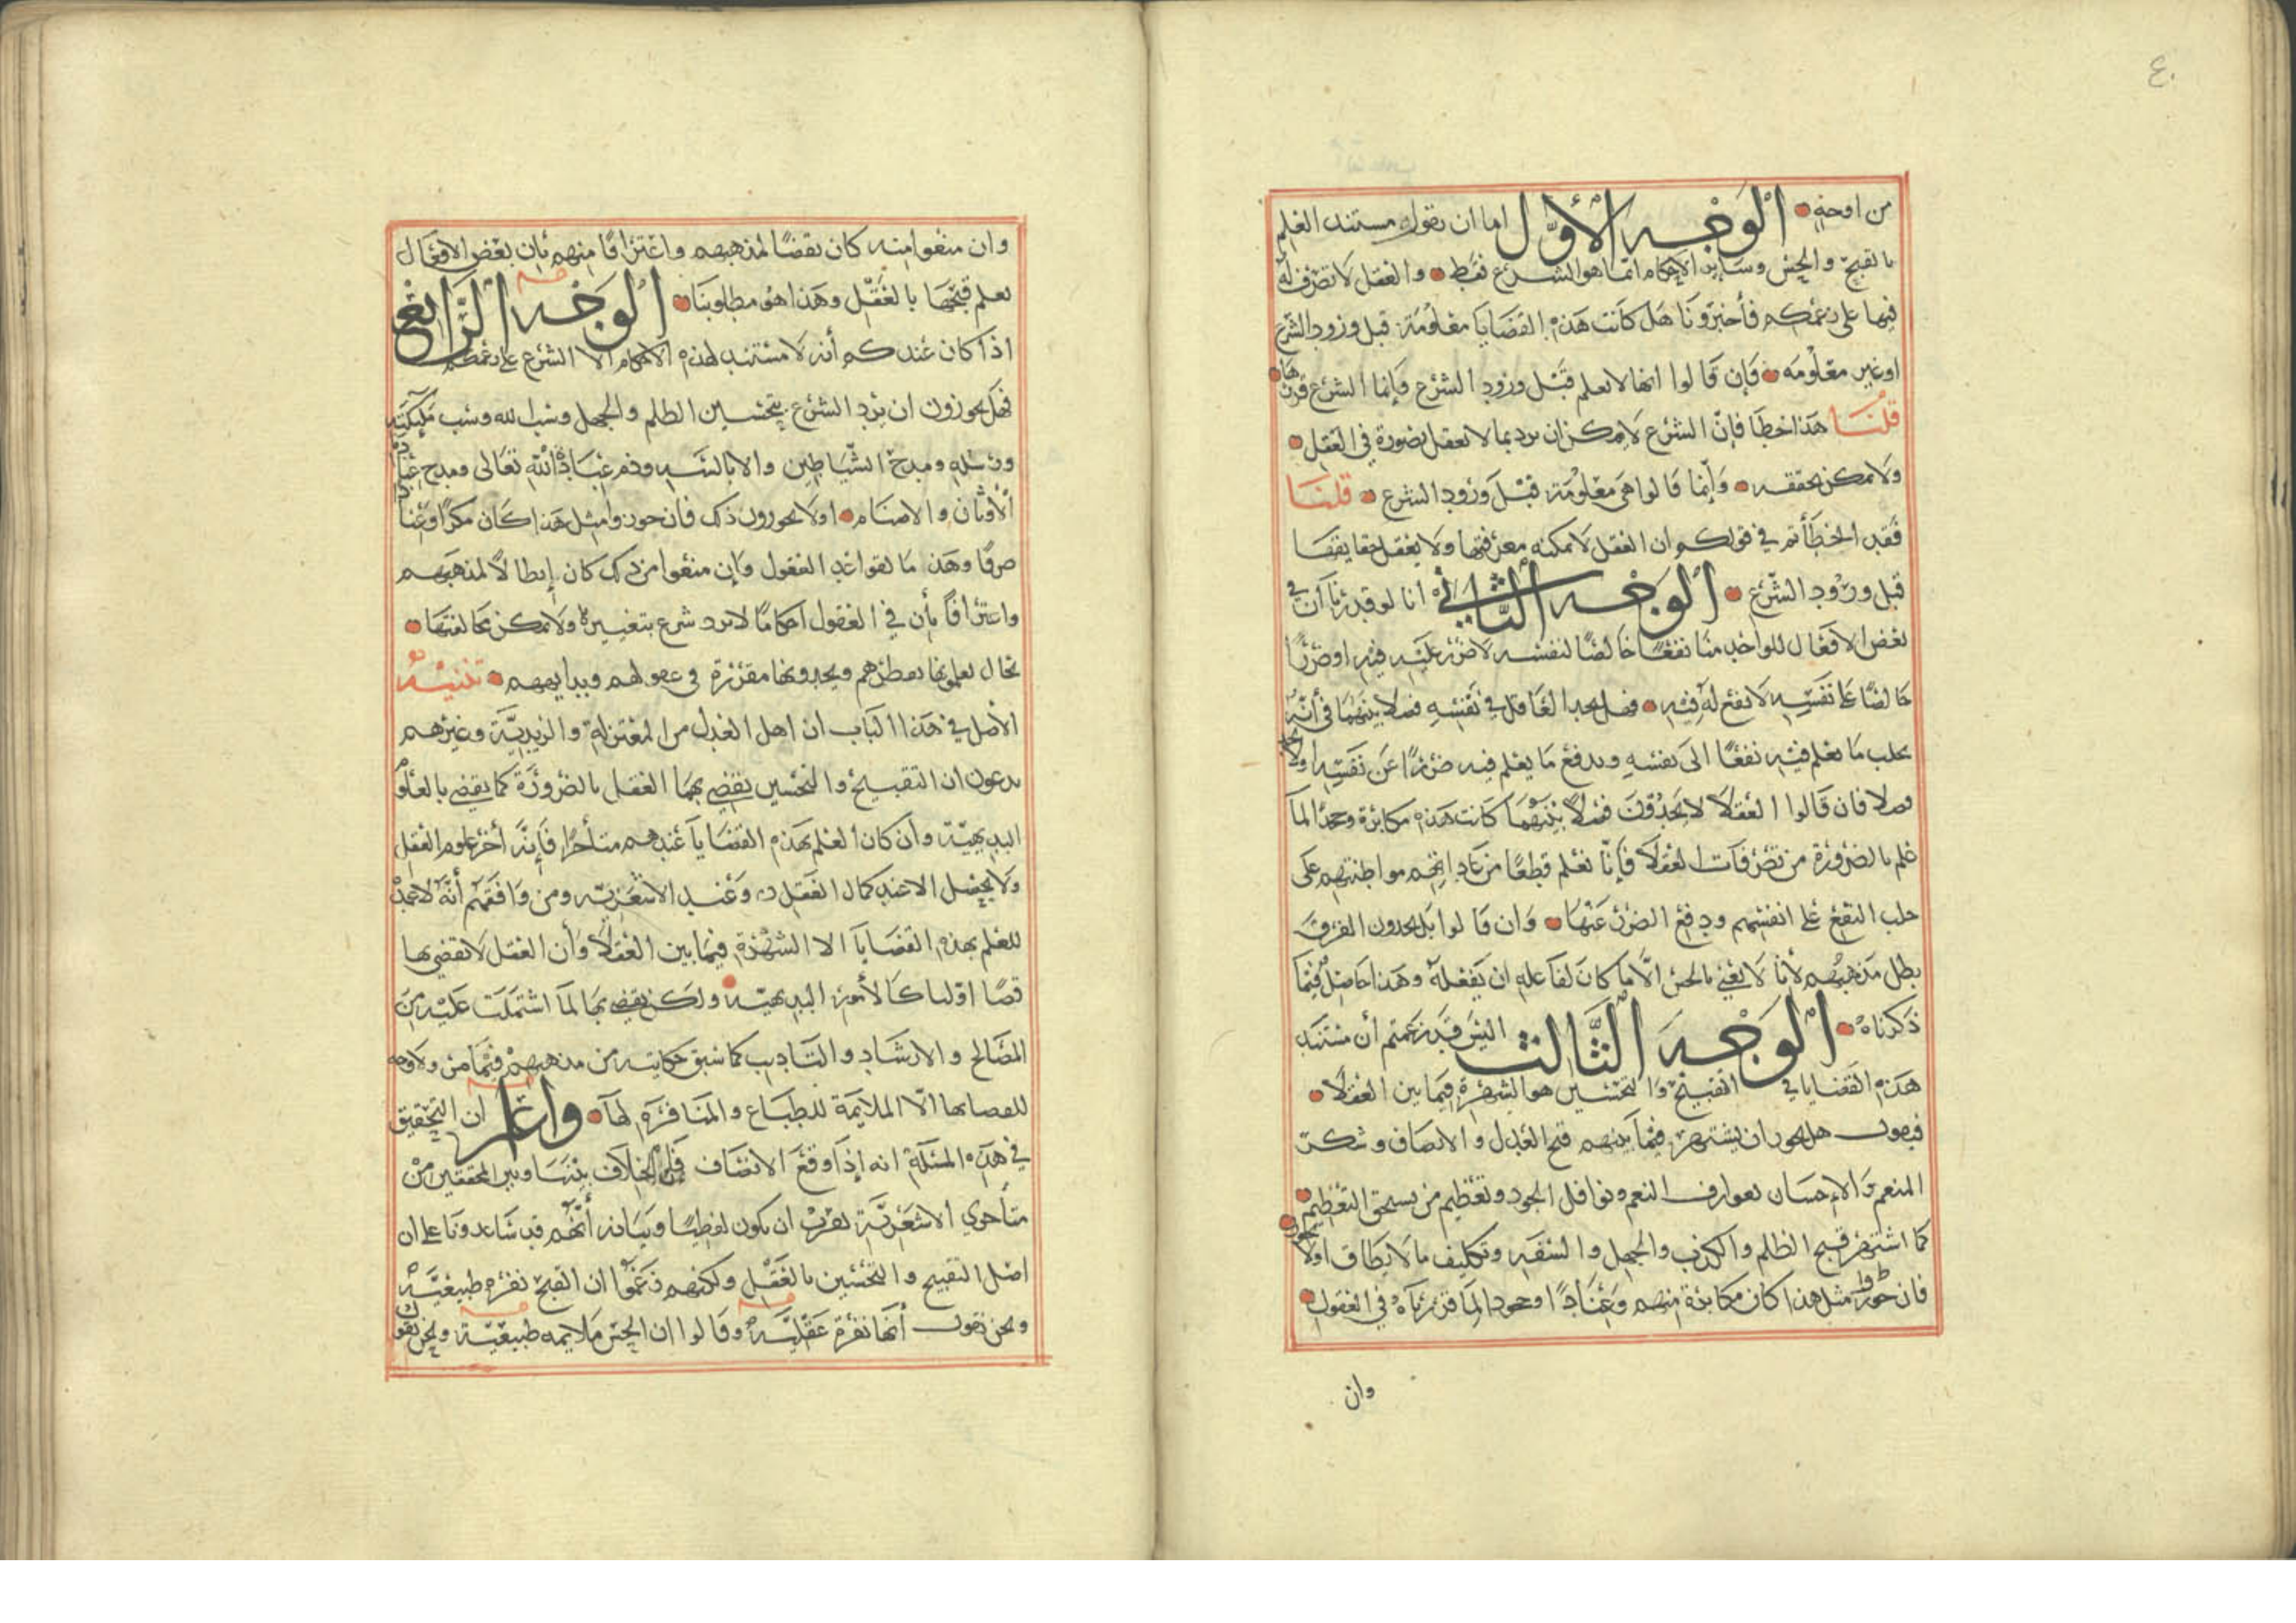 ٤٠
من اوجه الوجه الأول اما ان يقول مستند العلم
بالقبح والحسن وساير الاحكام انما هو الشرع فقط والعقل لا تصرف له
فيها على زعمكم فأخبرونا هل كانت هذه القضايا معلومة قبل ورود الشرع
او غير معلومه فإن قالوا انها لا تعلم قبل ورود الشرع وإنما الشرع قررها
قلنا هذا خطأ فإن الشرع لا يمكن ان يرد بما لا يعقل بصورة في العقل
ولا يمكن تحققه وإنما قالوا هي معلومة قبل ورود الشرع قلنا
فقد اخطأتم في قولكم ان العقل لا يمكنه معرفتها ولا يعقل حقايقها
قبل ورود الشرع الوجه الثاني أنا لو قدرنا أن في
بعض الافعال للواحد منا نفعًا خالصًا لنفسه لا ضرر عليه فيه او ضررًا
خالصًا على نفسه لا نفع له فيه فهل يجد العاقل في نفسه فصلا بينهما في أنه
يجلب ما يعلم فيه نفعًا الى نفسه ويدفع ما يعلم فيه ضررًا عن نفسه اولا يجد
فصلا فان قالوا العقلا لا يجدون فصلاً بينهما كانت هذه مكابرة وجحدًا لما
علم بالضرورة من تصرفات العقلا فإنا نعلم قطعًا من عاداتهم مواظبتهم على
جلب النفع على انفسهم ودفع الضرر عنها وان قالوا بل يجدون الفرق
بطل مذهبهم لأنا لا نعني بالحسن الا ما كان لفاعله ان يفعله وهذا حاصل فيما
ذكرناه الوجه الثالث اليس قد زعمتم أن مستند
هذه القضايا في التقبيح والتحسين هو الشهرة فيما بين العقلا
فنقول هل يجوز ان يشتهر فيما بينهم قبح العدل والانصاف وشكر
المنعم والاحسان بعوارف النعم ونوافل الجود وتعظيم من يستحق التعظيم
كما اشتهر قبح الظلم والكذب والجهل والسفه وتكليف ما لا يطاق اولا يجوز
فان جوزوا مثل هذا كان مكابرة منهم وعنادًا وجحودا لما قررناه في العقول
وان
وان منعوا منه كان نقضًا لمذهبهم واعترافًا منهم بأن بعض الافعال
نعلم قبحها بالعقل وهذا هو مطلوبنا الوجه الرابع
اذا كان عندكم أنه لا مستند لهذه الاحكام الا الشرع على زعمكم
فهل يجوزون ان يرد الشرع بتحسين الظلم والجهل وسب الله وسب ملائكته
ورسله ومدح الشياطين والابالسه وذم عبادة الله تعالى ومدح عبادة
الأوثان والاصنام اولا يجوزون ذلك فان جوزوا مثل هذا كان مكرًا وعنادا
صرفًا وهذا ما لقواعد العقول وإن منعوا من ذلك كان إبطالاً لمذهبهم
واعترافًا بأن في العقول احكامًا لا يرد شرع بتغييره ولا يمكن مخالفتها
بحال يعلمونها بفطرهم ويجدونها مقررة في عقولهم وبدايههم تنبيه
الأصل في هذا الباب ان اهل العدل من المعتزلة والزيدية وغيرهم
يدعون ان التقبيح والتحسين يقضي بهما العقل بالضرورة كما يقضي بالعلوم
البديهية وأن كان العلم بهذه القضايا عندهم متأخرا فإنه أخر علوم العقل
ولا يحصل الا عند كمال العقل وعند الاشعرية ومن وافقهم أنه لا عمدة
للعلم بهذه القضايا الا الشهرة فيما بين العقلا وأن العقل لا تقضي بها
قضًا اوليا كالأمور البديهية ولكن يقضي بها لما اشتملت عليه من
المصالح والارشاد والتاديب كما سبق حكايته من مذهبهم فيما مر ولا وجه
للقضا بها إلا الملايمة للطباع والمنافرة لها واعلم ان التحقيق
في هذه المسئلة انه إذا وقع الانصاف فلعل الخلاف بيننا وبين المحققين من
متأخري الاشعرية يقرب ان يكون لفظيًا وبيانه أنهم قد ساعدونا على ان
اصل التقبيح والتحسين بالعقل ولكنهم زعموا ان القبح نفرة طبيعية
ونحن نقول أنها نفرة عقلية وقالوا ان الحسن ملايمه طبيعية ونحن نقول